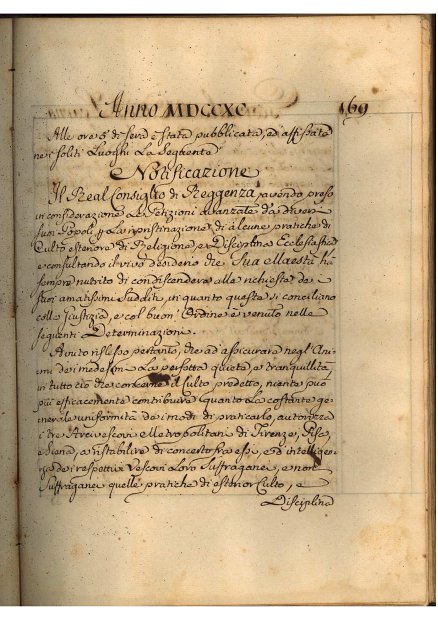 Anno MDCCXC 169
Alle ore 5 di sera è stata pubblicata, ed affissata
nei soliti Luoghi La Seguente
Notificazione
Il Real Consiglio di Reggenza avendo preso
in considerazione Le Petizioni avanzate da diversi
suoi Popoli, La ripristinazione di alcune pratiche di
Culto esteriore di Religione, e Disciplina Ecclesiastica
e consultando il vivo desiderio che Sua Maestà há
sempre nutrito di condiscendere alle richieste de
suoi amatissimi Sudditi, in quanto queste si conciliano
colla Giustizia, e col buon' Ordine è venuto nelle
seguenti Determinazioni.
Avuto riflesso pertanto, che ad assicurare negl' Ani-
mi dei medesimi La perfetta quiete, e tranquillità
in tutto ciò che concerne il Culto predetto, niente può
più efficacemente contribuire quanto La costante ge-
nerale uniformità dei modi di praticarlo, autorizza
i tre Arcivescovi Metropolitani di Firenze, Pisa,
e Siena, a ristabilire di concerto fra essi, e d'intelligen-
za dei respettivi Vescovi Loro Suffraganei, e non
Suffraganei quelle pratiche di esterior Culto, e
Disciplina